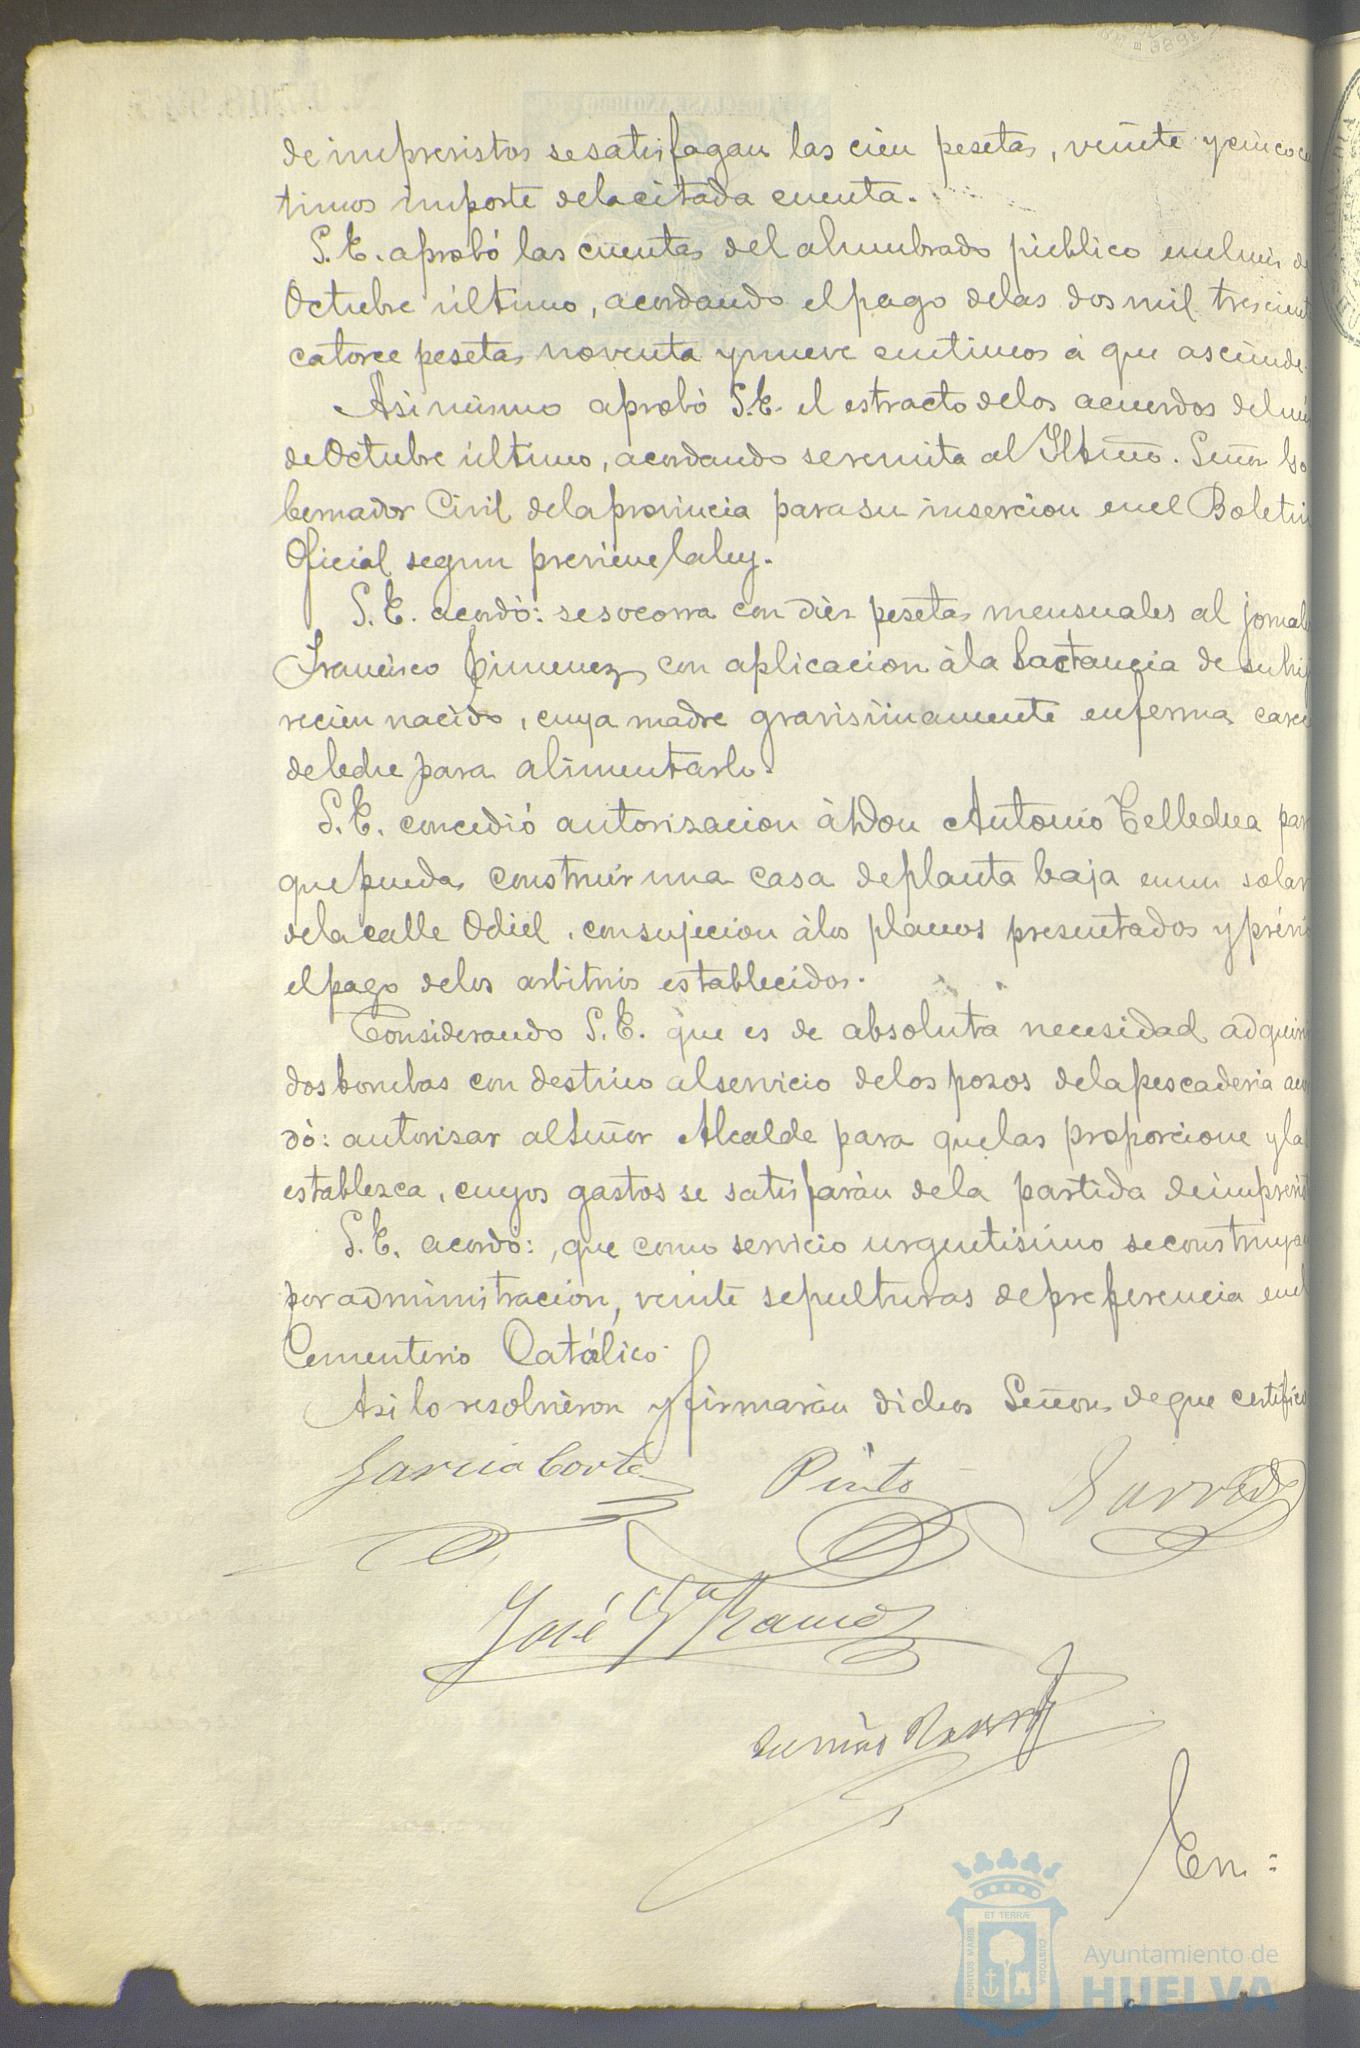 de imprevistos se satisfagan las cien pesetas, veinte y cinco
timos importe de la citada cuenta.
S. E. aprobó las cuentas del alumbrado público en el mes de
Octubre último, acordando el pago de las dos mil trescient
catorce pesetas noventa y nueve centimos á que asciende.
Asi mismo aprobó S. E. el estracto de los acuerdos del mes
de Octubre último, acordando se remita al Iltmo. Señor Go
bernador Civil de la provincia para su insercion en el Boletin
Oficial segun previene la ley.
S. E. acordó: se socorra con diez pesetas mensuales al jornale
Francisco Jimenez con aplicacion á la lactancia de su hij
recien nacido, cuya madre gravisimamente enferma carec
de leche para alimentarlo.
S. E. concedió autorizacion á Don Antonio Tellechea par
que pueda construir una casa de planta baja en un solar
de la calle Odiel, con sujecion á los planos presentados y prévi
el pago de los arbitrios establecidos.
Considerando S. E. que es de absoluta necesidad adquiri
dos bombas con destino al servicio de los pozos de la pescaderia acor
dó: autorizar al Señor Alcalde para que las proporcione y la
establezca, cuyos gastos se satisfarán de la partida de imprevist
S. E. acordó:, que como servicio urgentisimo se construyan
por administracion, veinte sepulturas de preferencia en el
Cementerio Católico.
Asi lo resolvieron y firmarán dichos Señores de que certifico
Garcia Cortés Pinto
José Ga Ramos
En =
ET TERRÆ
PORTUS MARIS
CUSTODIA
Ayuntamiento de
HUELVA